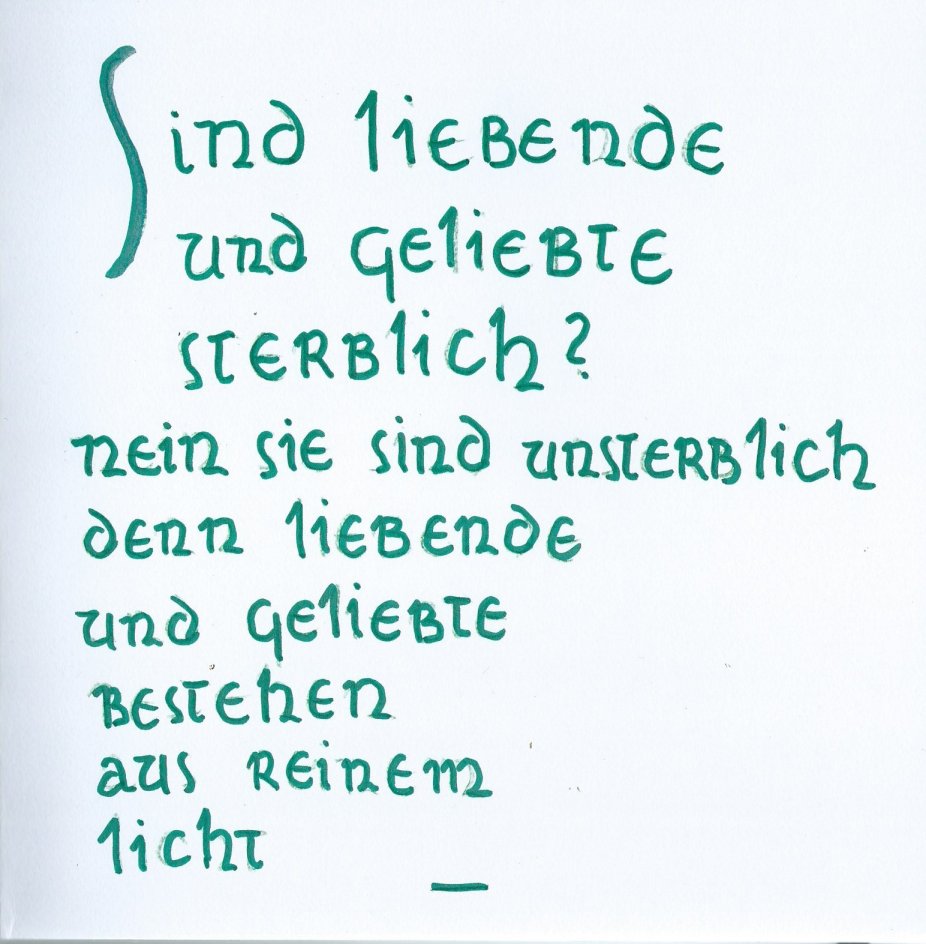 Sind liebende
und geliebte
sterblich?
nein sie sind unsterblich
denn liebende
und geliebte
bestehen
aus reinem
licht